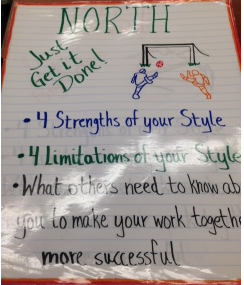 NORTH
Just
Get it
Done!
• 4 Strengths of your Style
• 4 Limitations of your Style
• What others need to know ab
you to make your work togethe
more successful